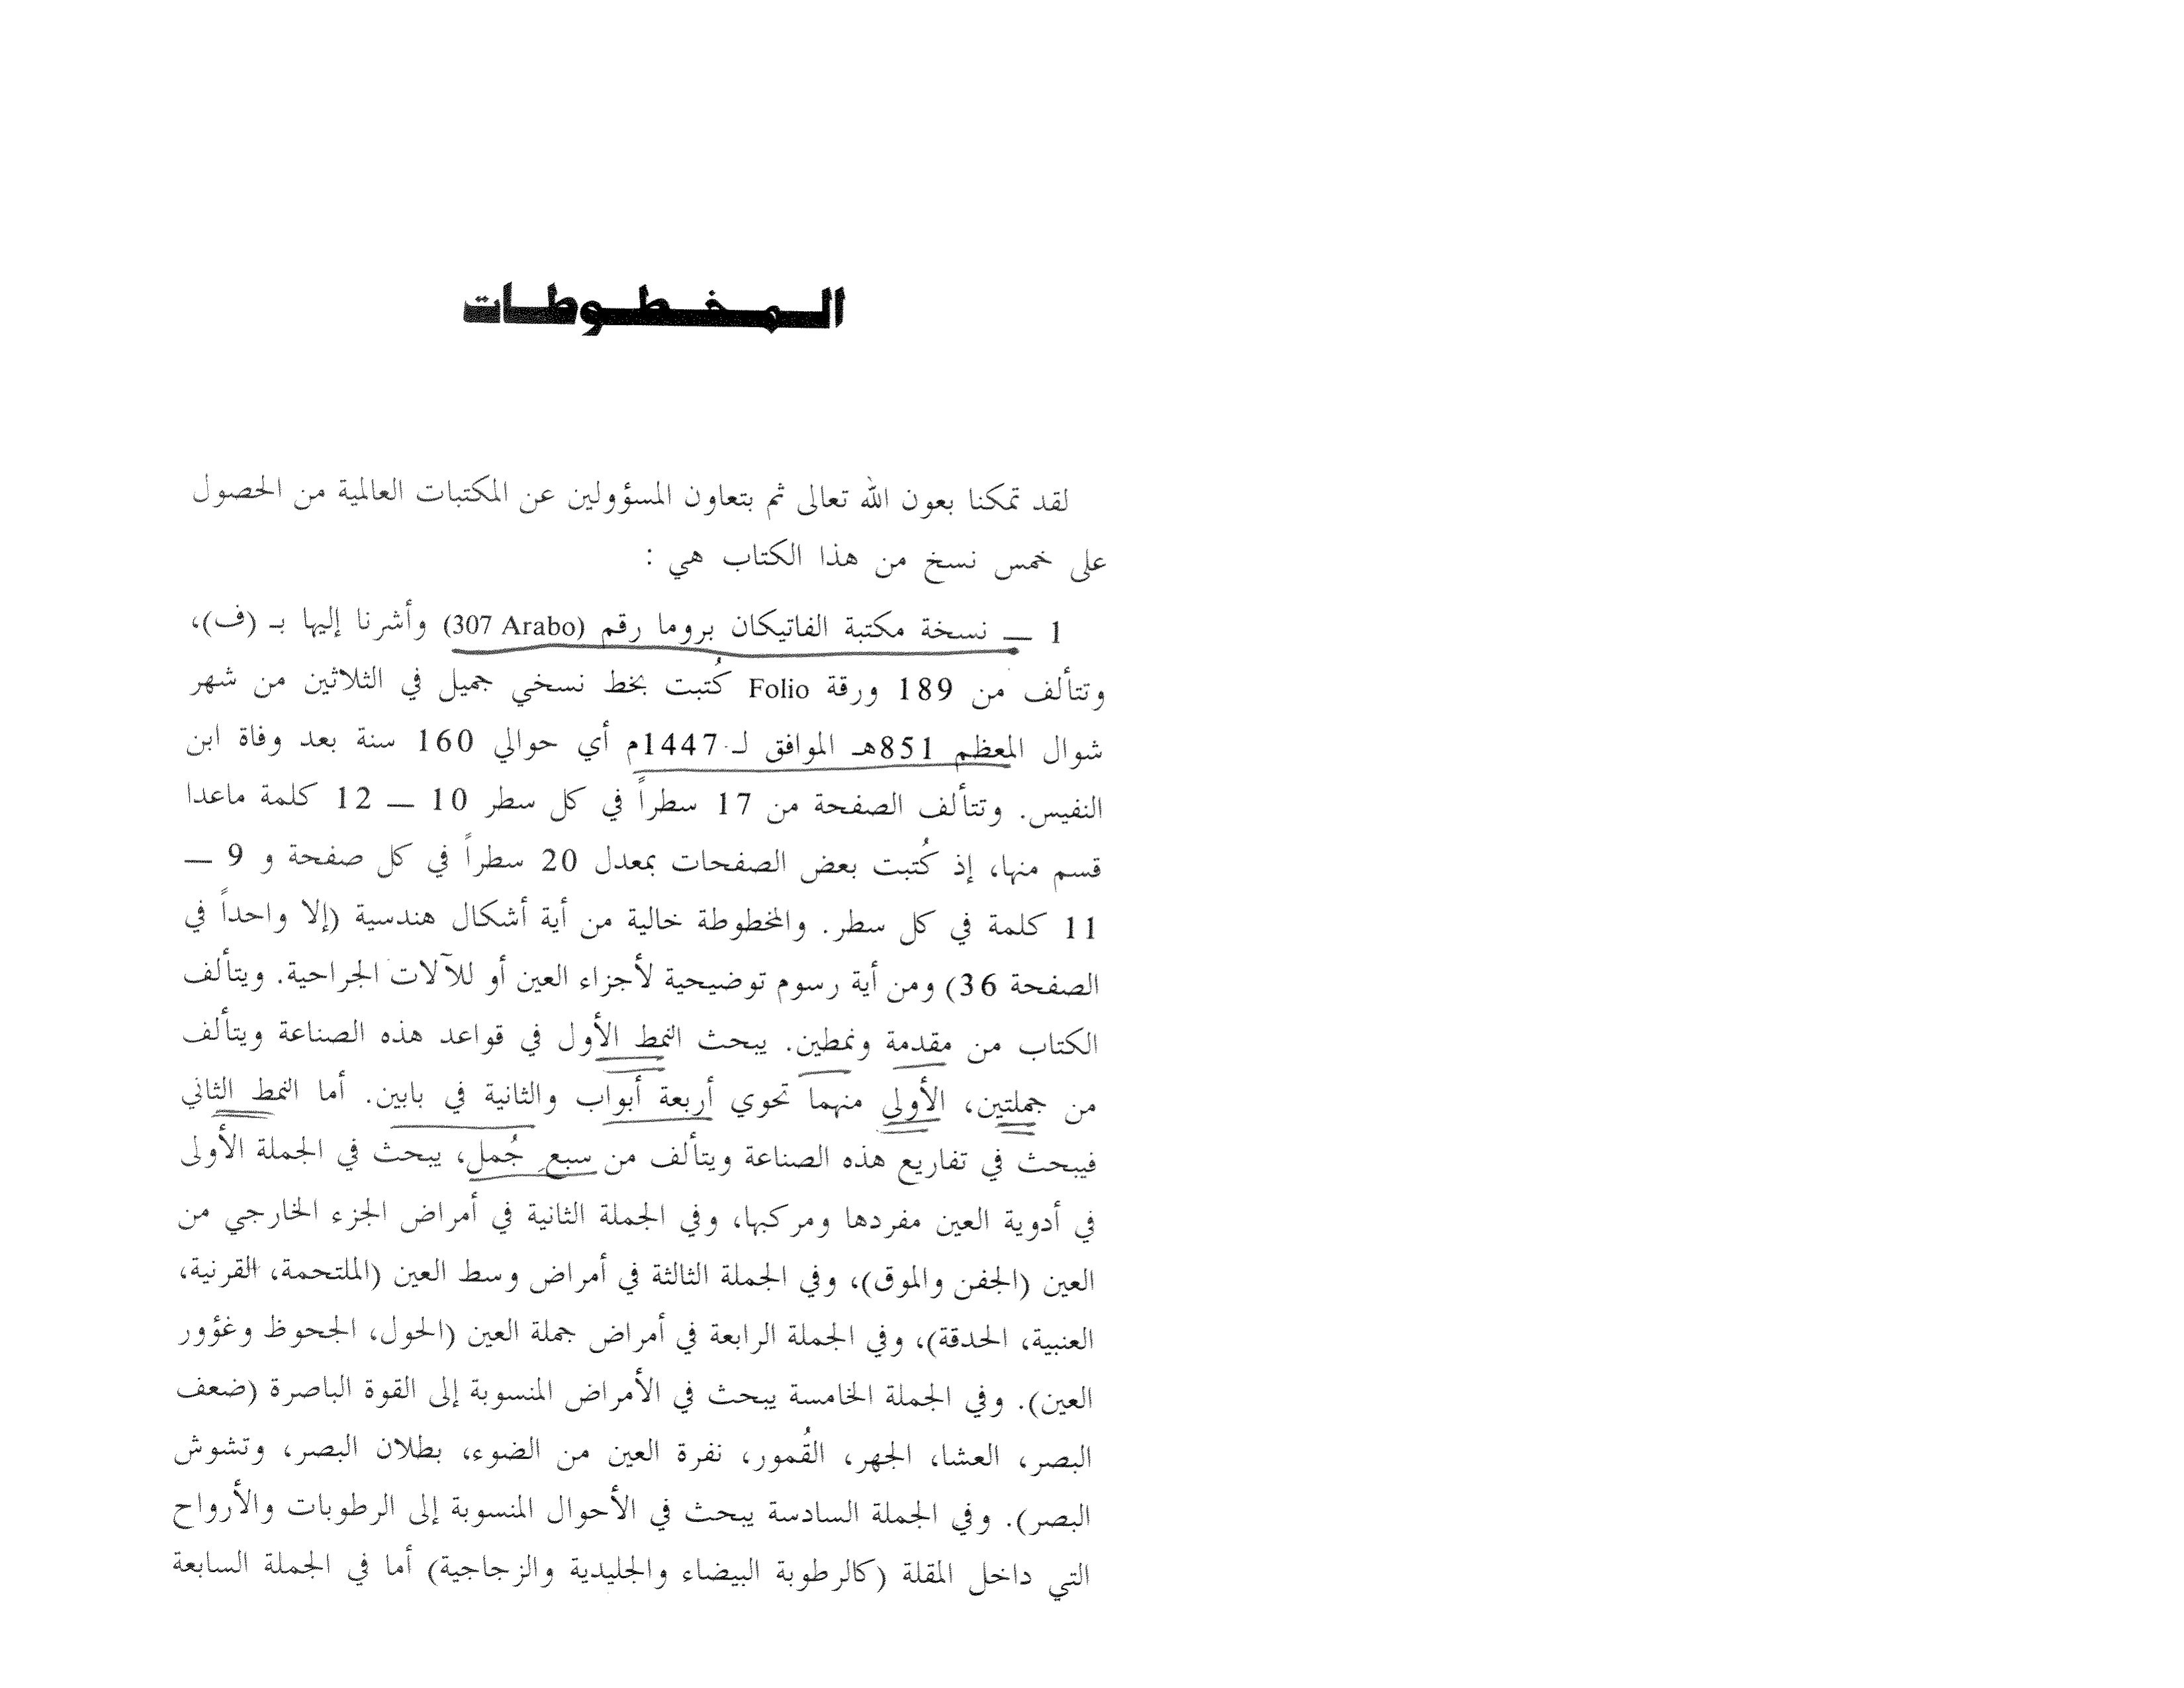 المخطوطات
لقد تمكنا بعون الله تعالى ثم بتعاون المسؤولين عن المكتبات العالمية من الحصول
على خمس نسخ من هذا الكتاب هي :
1 — نسخة مكتبة الفاتيكان بروما رقم (307 Arabo) وأشرنا إليها بـ (ف)،
وتتألف من 189 ورقة Folio كُتبت بخط نسخي جميل في الثلاثين من شهر
شوال المعظم 851هـ الموافق لـ 1447م أي حوالي 160 سنة بعد وفاة ابن
النفيس. وتتألف الصفحة من 17 سطراً في كل سطر 10 — 12 كلمة ماعدا
قسم منها، إذ كُتبت بعض الصفحات بمعدل 20 سطراً في كل صفحة و 9 —
11 كلمة في كل سطر. والمخطوطة خالية من أية أشكال هندسية (إلا واحداً في
الصفحة 36) ومن أية رسوم توضيحية لأجزاء العين أو للآلات الجراحية. ويتألف
الكتاب من مقدمة ونمطين. يبحث النمط الأول في قواعد هذه الصناعة ويتألف
من جملتين، الأولى منهما تحوي أربعة أبواب والثانية في بابين. أما النمط الثاني
فيبحث في تفاريع هذه الصناعة ويتألف من سبع جُمل، يبحث في الجملة الأولى
في أدوية العين مفردها ومركبها، وفي الجملة الثانية في أمراض الجزء الخارجي من
العين (الجفن والموق)، وفي الجملة الثالثة في أمراض وسط العين (الملتحمة، القرنية،
العنبية، الحدقة)، وفي الجملة الرابعة في أمراض جملة العين (الحول، الجحوظ وغؤور
العين). وفي الجملة الخامسة يبحث في الأمراض المنسوبة إلى القوة الباصرة (ضعف
البصر، العشا، الجهر، القُمور، نفرة العين من الضوء، بطلان البصر، وتشوش
البصر). وفي الجملة السادسة يبحث في الأحوال المنسوبة إلى الرطوبات والأرواح
التي داخل المقلة (كالرطوبة البيضاء والجليدية والزجاجية) أما في الجملة السابعة